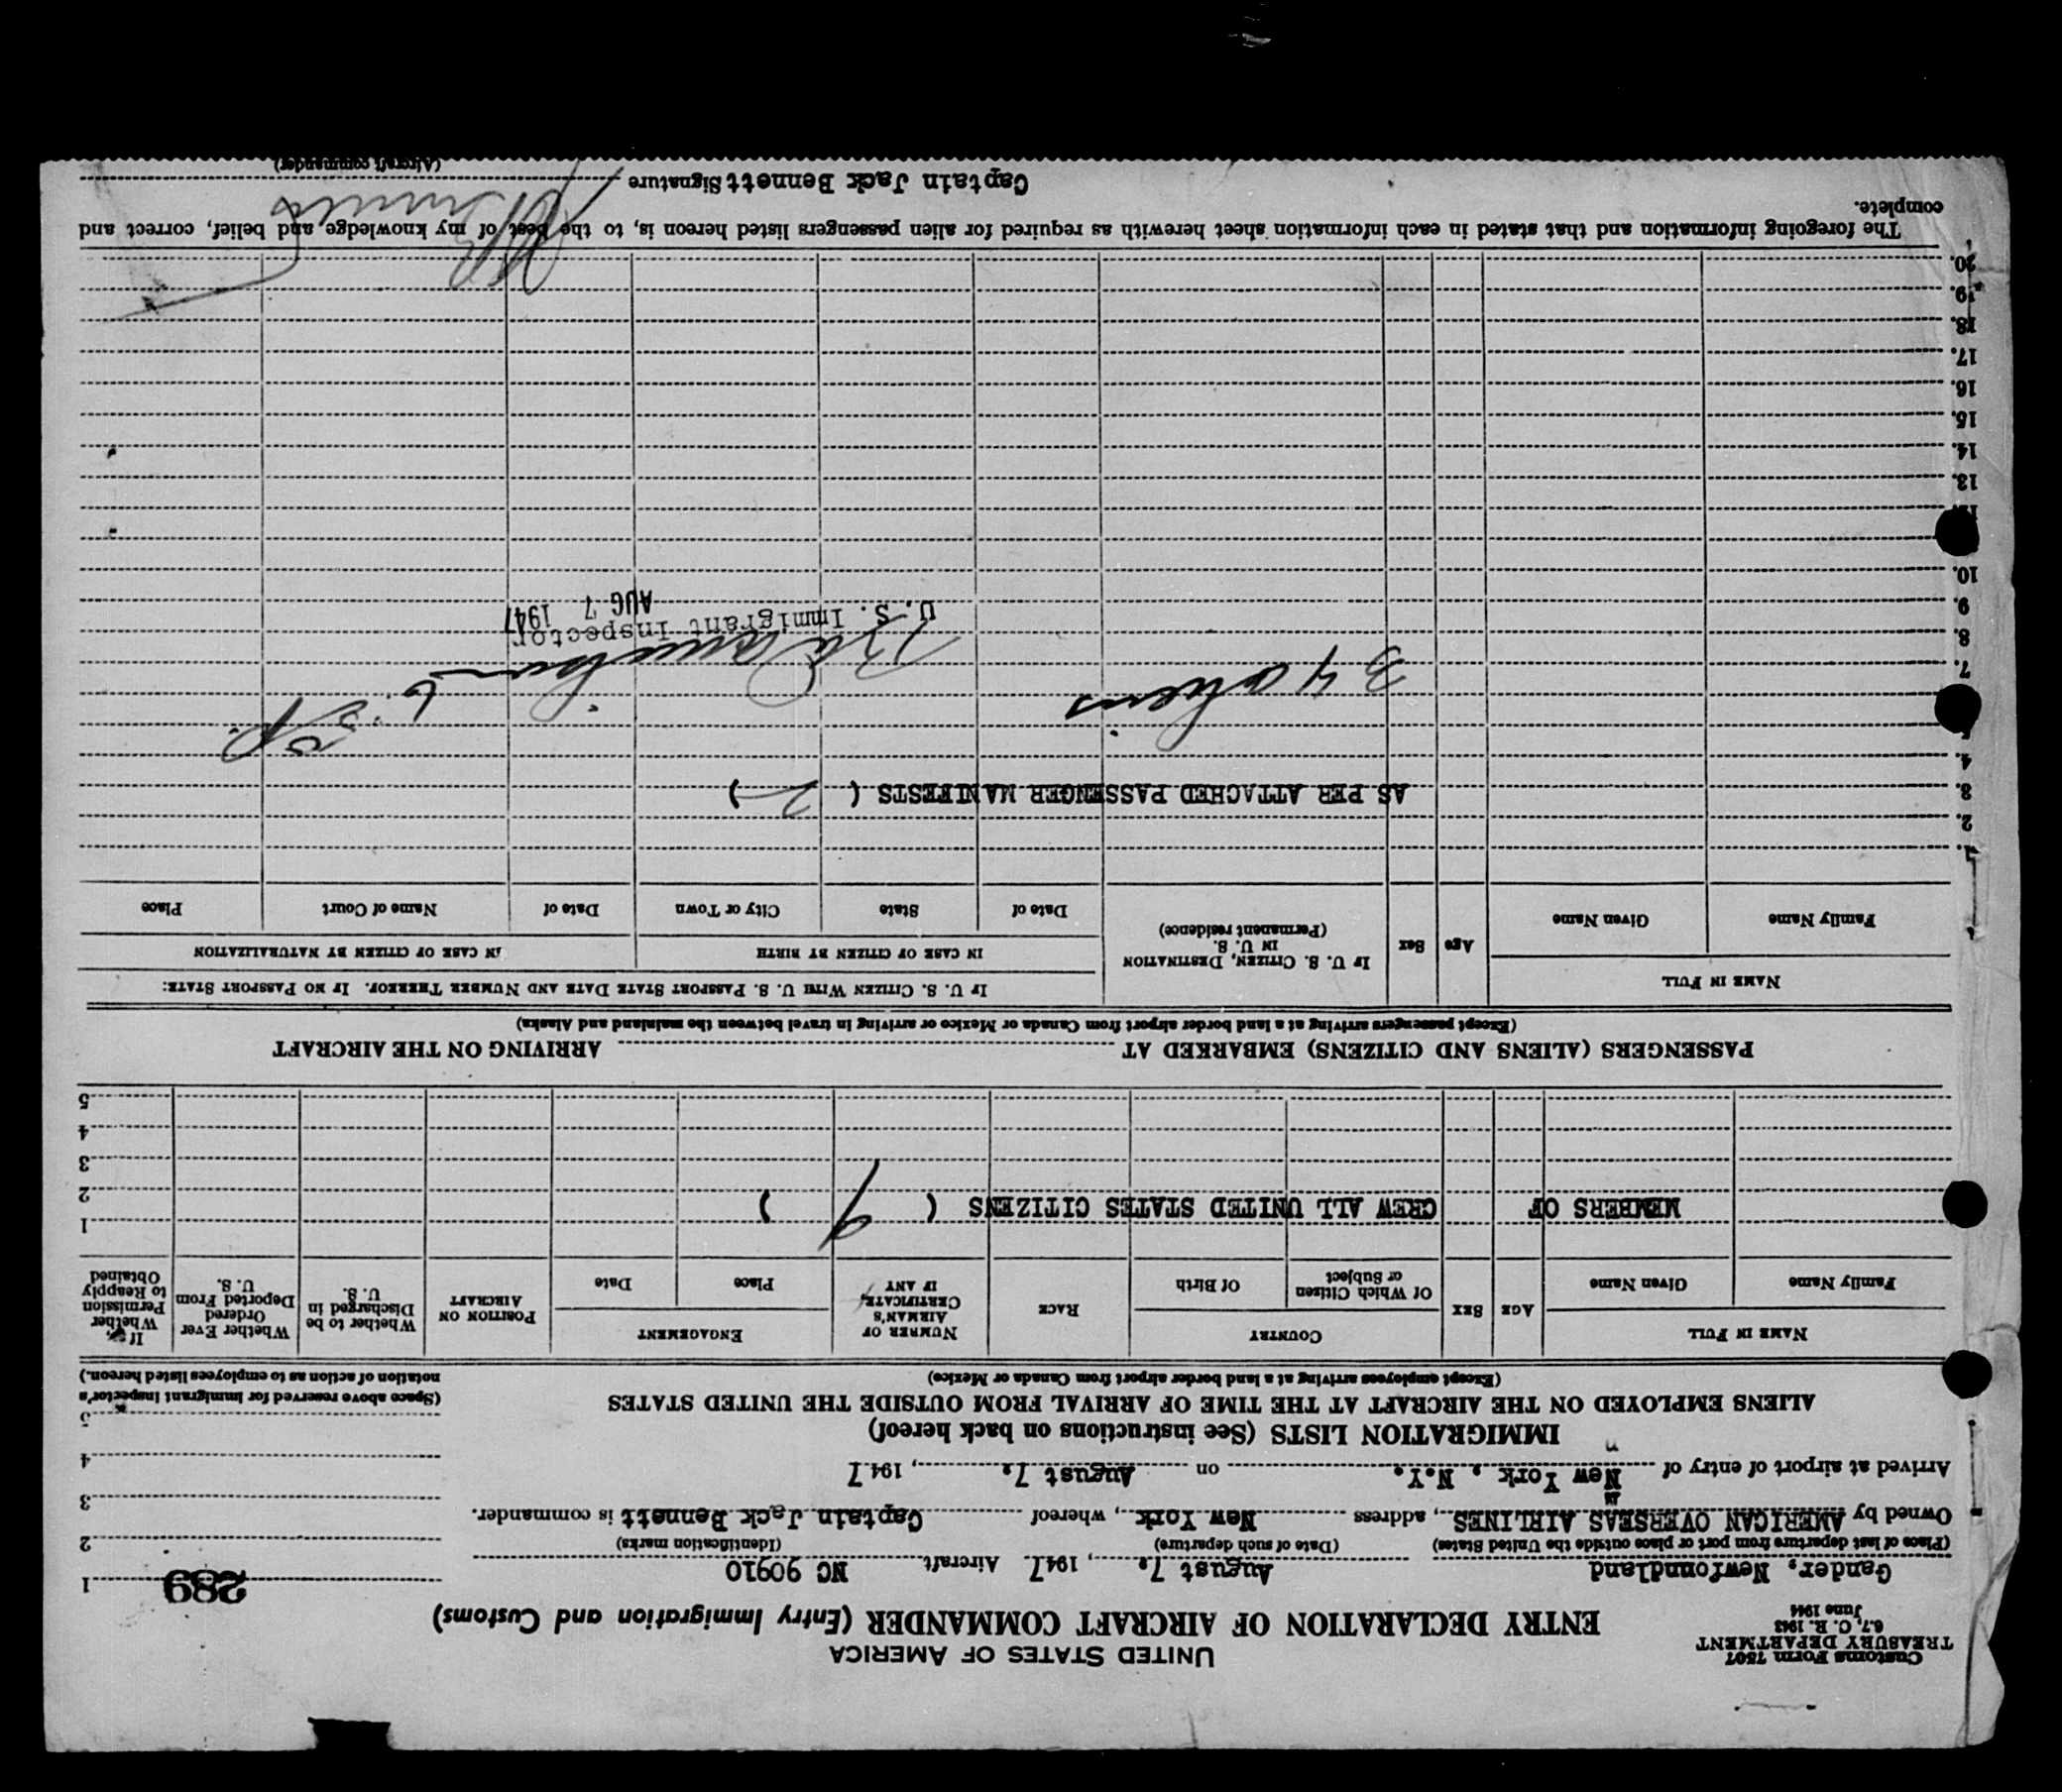 Customs Form 7507
TREASURY DEPARTMENT
6.7, C. R. 1943
June 1944
UNITED STATES OF AMERICA
ENTRY DECLARATION OF AIRCRAFT COMMANDER (Entry Immigration and Customs)
289
Gander, Newfoundland August 7, 1947 Aircraft NC 90910
(Place of last departure from port or place outside the United States) (Date of such departure) (Identification marks)
Owned by AMERICAN OVERSEAS AIRLINES, address New York, whereof Captain Jack Bennett is commander.
Arrived at airport of entry of New York, N.Y. on August 7, 1947
1
2
3
4
5
(Space above reserved for immigrant inspector's
notation of action as to employees listed hereon.)
IMMIGRATION LISTS (See instructions on back hereof)
ALIENS EMPLOYED ON THE AIRCRAFT AT THE TIME OF ARRIVAL FROM OUTSIDE THE UNITED STATES
(Except employees arriving at a land border airport from Canada or Mexico)
NAME IN FULL
Family Name Given Name
AGE
SEX
COUNTRY
Of Which Citizen or Subject
Of Birth
RACE
NUMBER OF AIRMAN'S CERTIFICATE, IF ANY
ENGAGEMENT
Place Date
POSITION ON AIRCRAFT
Whether to be Discharged in U. S.
Whether Ever Ordered Deported From U. S.
If so, Whether Permission to Reapply Obtained
1
MEMBERS OF CREW ALL UNITED STATES CITIZENS ( 9 )
2
3
4
5
PASSENGERS (ALIENS AND CITIZENS) EMBARKED AT ARRIVING ON THE AIRCRAFT
(Except passengers arriving at a land border airport from Canada or Mexico or arriving in travel between the mainland and Alaska)
NAME IN FULL
Family Name Given Name
Age
Sex
IF U. S. CITIZEN, DESTINATION IN U. S.
(Permanent residence)
IF U. S. CITIZEN WITH U. S. PASSPORT STATE DATE AND NUMBER THEREOF. IF NO PASSPORT STATE:
IN CASE OF CITIZEN BY BIRTH
IN CASE OF CITIZEN BY NATURALIZATION
Date of State City or Town Date of Name of Court Place
1.
2.
3. AS PER ATTACHED PASSENGER MANIFESTS ( 2 )
4.
34 aliens
7.
8.
U. S. Immigrant Inspector
9.
AUG 7 1947
10.
12.
13.
14.
15.
16.
17.
18.
19.
20.
The foregoing information and that stated in each information sheet herewith as required for alien passengers listed hereon is, to the best of my knowledge, and belief, correct and
complete.
Captain Jack Bennett Signature
(Aircraft commander)